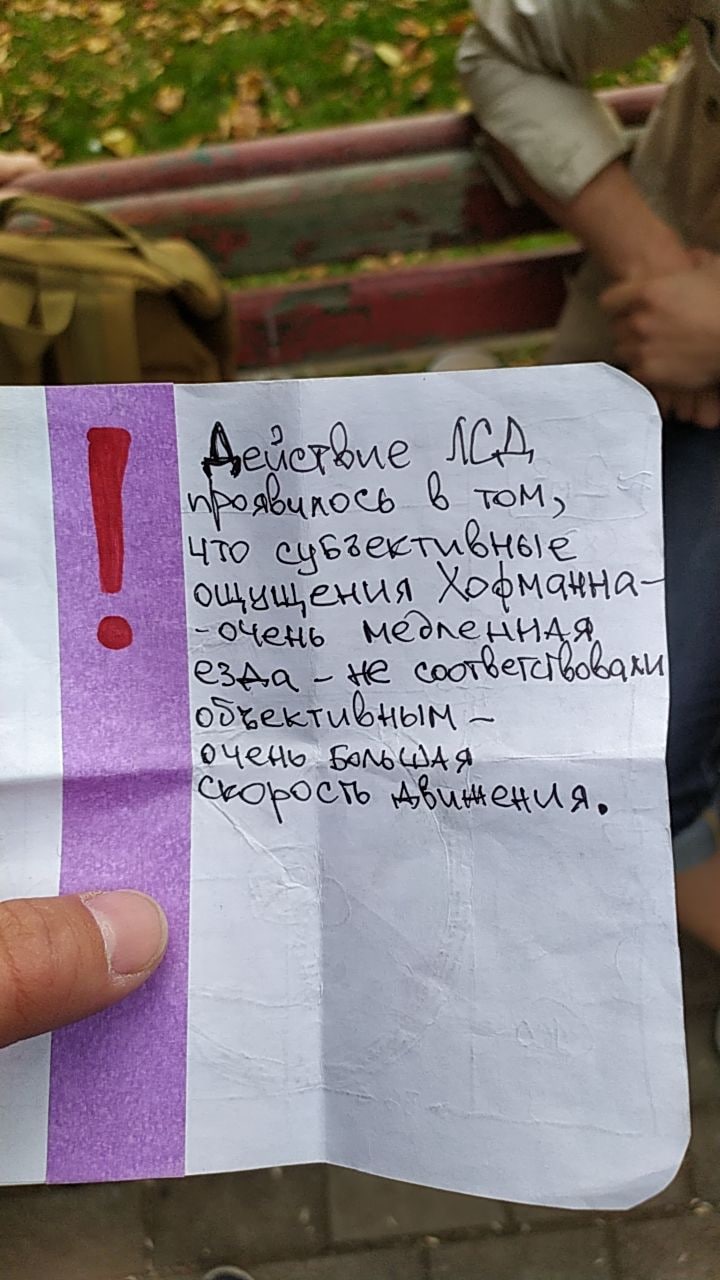 !
Действие ЛСД
проявилось в том,
что субъективные
ощущения Хофманна-
-очень медленная
езда - не соответствовали
объективным -
очень большая
скорость движения.